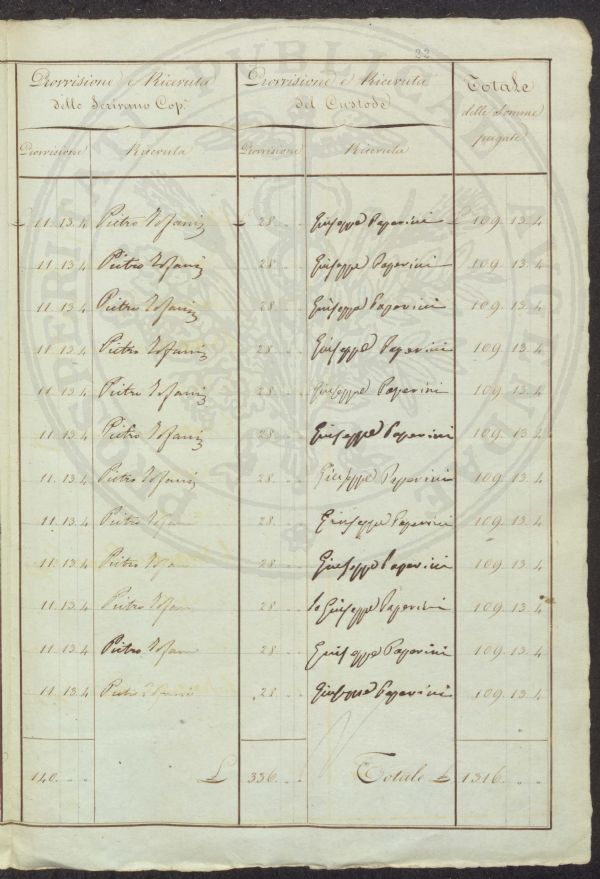 22
Provvisione e Ricevuta
dello Scrivano Cop.
Provvisione e Ricevuta
del Custode
Totale
delle Somme
pagate
Provvisione Ricevuta Provvisione Ricevuta
£ 11. 13. 4 Pietro £ 28 .. .. Giuseppe Paperini £ 109. 13. 4
11. 13. 4 Pietro 28 .. .. Giuseppe Paperini 109. 13. 4
11. 13. 4 Pietro 28 .. .. Giuseppe Paperini 109. 13. 4
11. 13. 4 Pietro 28 .. .. Giuseppe Paperini 109. 13. 4
11. 13. 4 Pietro 28 .. .. Giuseppe Paperini 109. 13. 4
11. 13. 4 Pietro 28 .. .. Giuseppe Paperini 109. 13. 4
11. 13. 4 Pietro 28 .. .. Giuseppe Paperini 109. 13. 4
11. 13. 4 Pietro 28 .. .. Giuseppe Paperini 109. 13. 4
11. 13. 4 Pietro 28 .. .. Giuseppe Paperini 109. 13. 4
11. 13. 4 Pietro 28 .. .. Io Giuseppe Paperini 109. 13. 4
11. 13. 4 Pietro 28 .. .. Giuseppe Paperini 109. 13. 4
11. 13. 4 Pietro 28 .. .. Giuseppe Paperini 109. 13. 4
140. .. .. £ 336. .. .. Totale £ 1316. .. ..